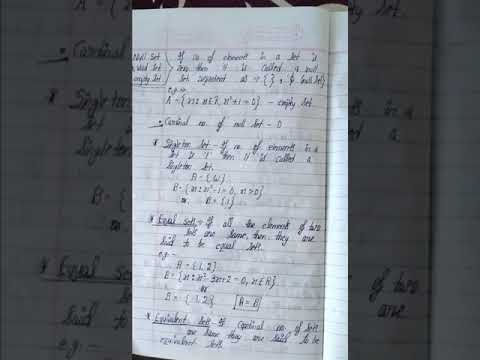 Null Set
Void Set
empty set
If no. of elements in a set is
zero then it is called a null
set. represent as → { }, ϕ (null set)
e.g →
A = {x : x ∈ R, x²+1 = 0} — empty set
• Cardinal no. of null set - 0
* Singleton set - If no. of elements in a
set is '1' then it is called a
singleton set.
B = {ω}
B = {x : x²-1 = 0, x > 0}
or B = {1}
* Equal sets - If all the elements of two
sets are same, then they are
said to be equal sets.
e.g -
A = {1, 2}
B = {x : x² - 3x + 2 = 0, x ∈ R}
or
B = {1, 2} A = B
* Equivalent sets - If cardinal no. of sets
are same they are said to be
equivalent sets.